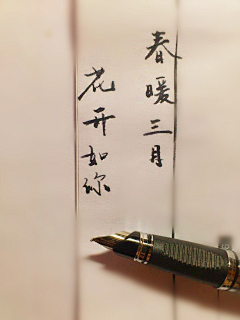 春暖三月
花开如你